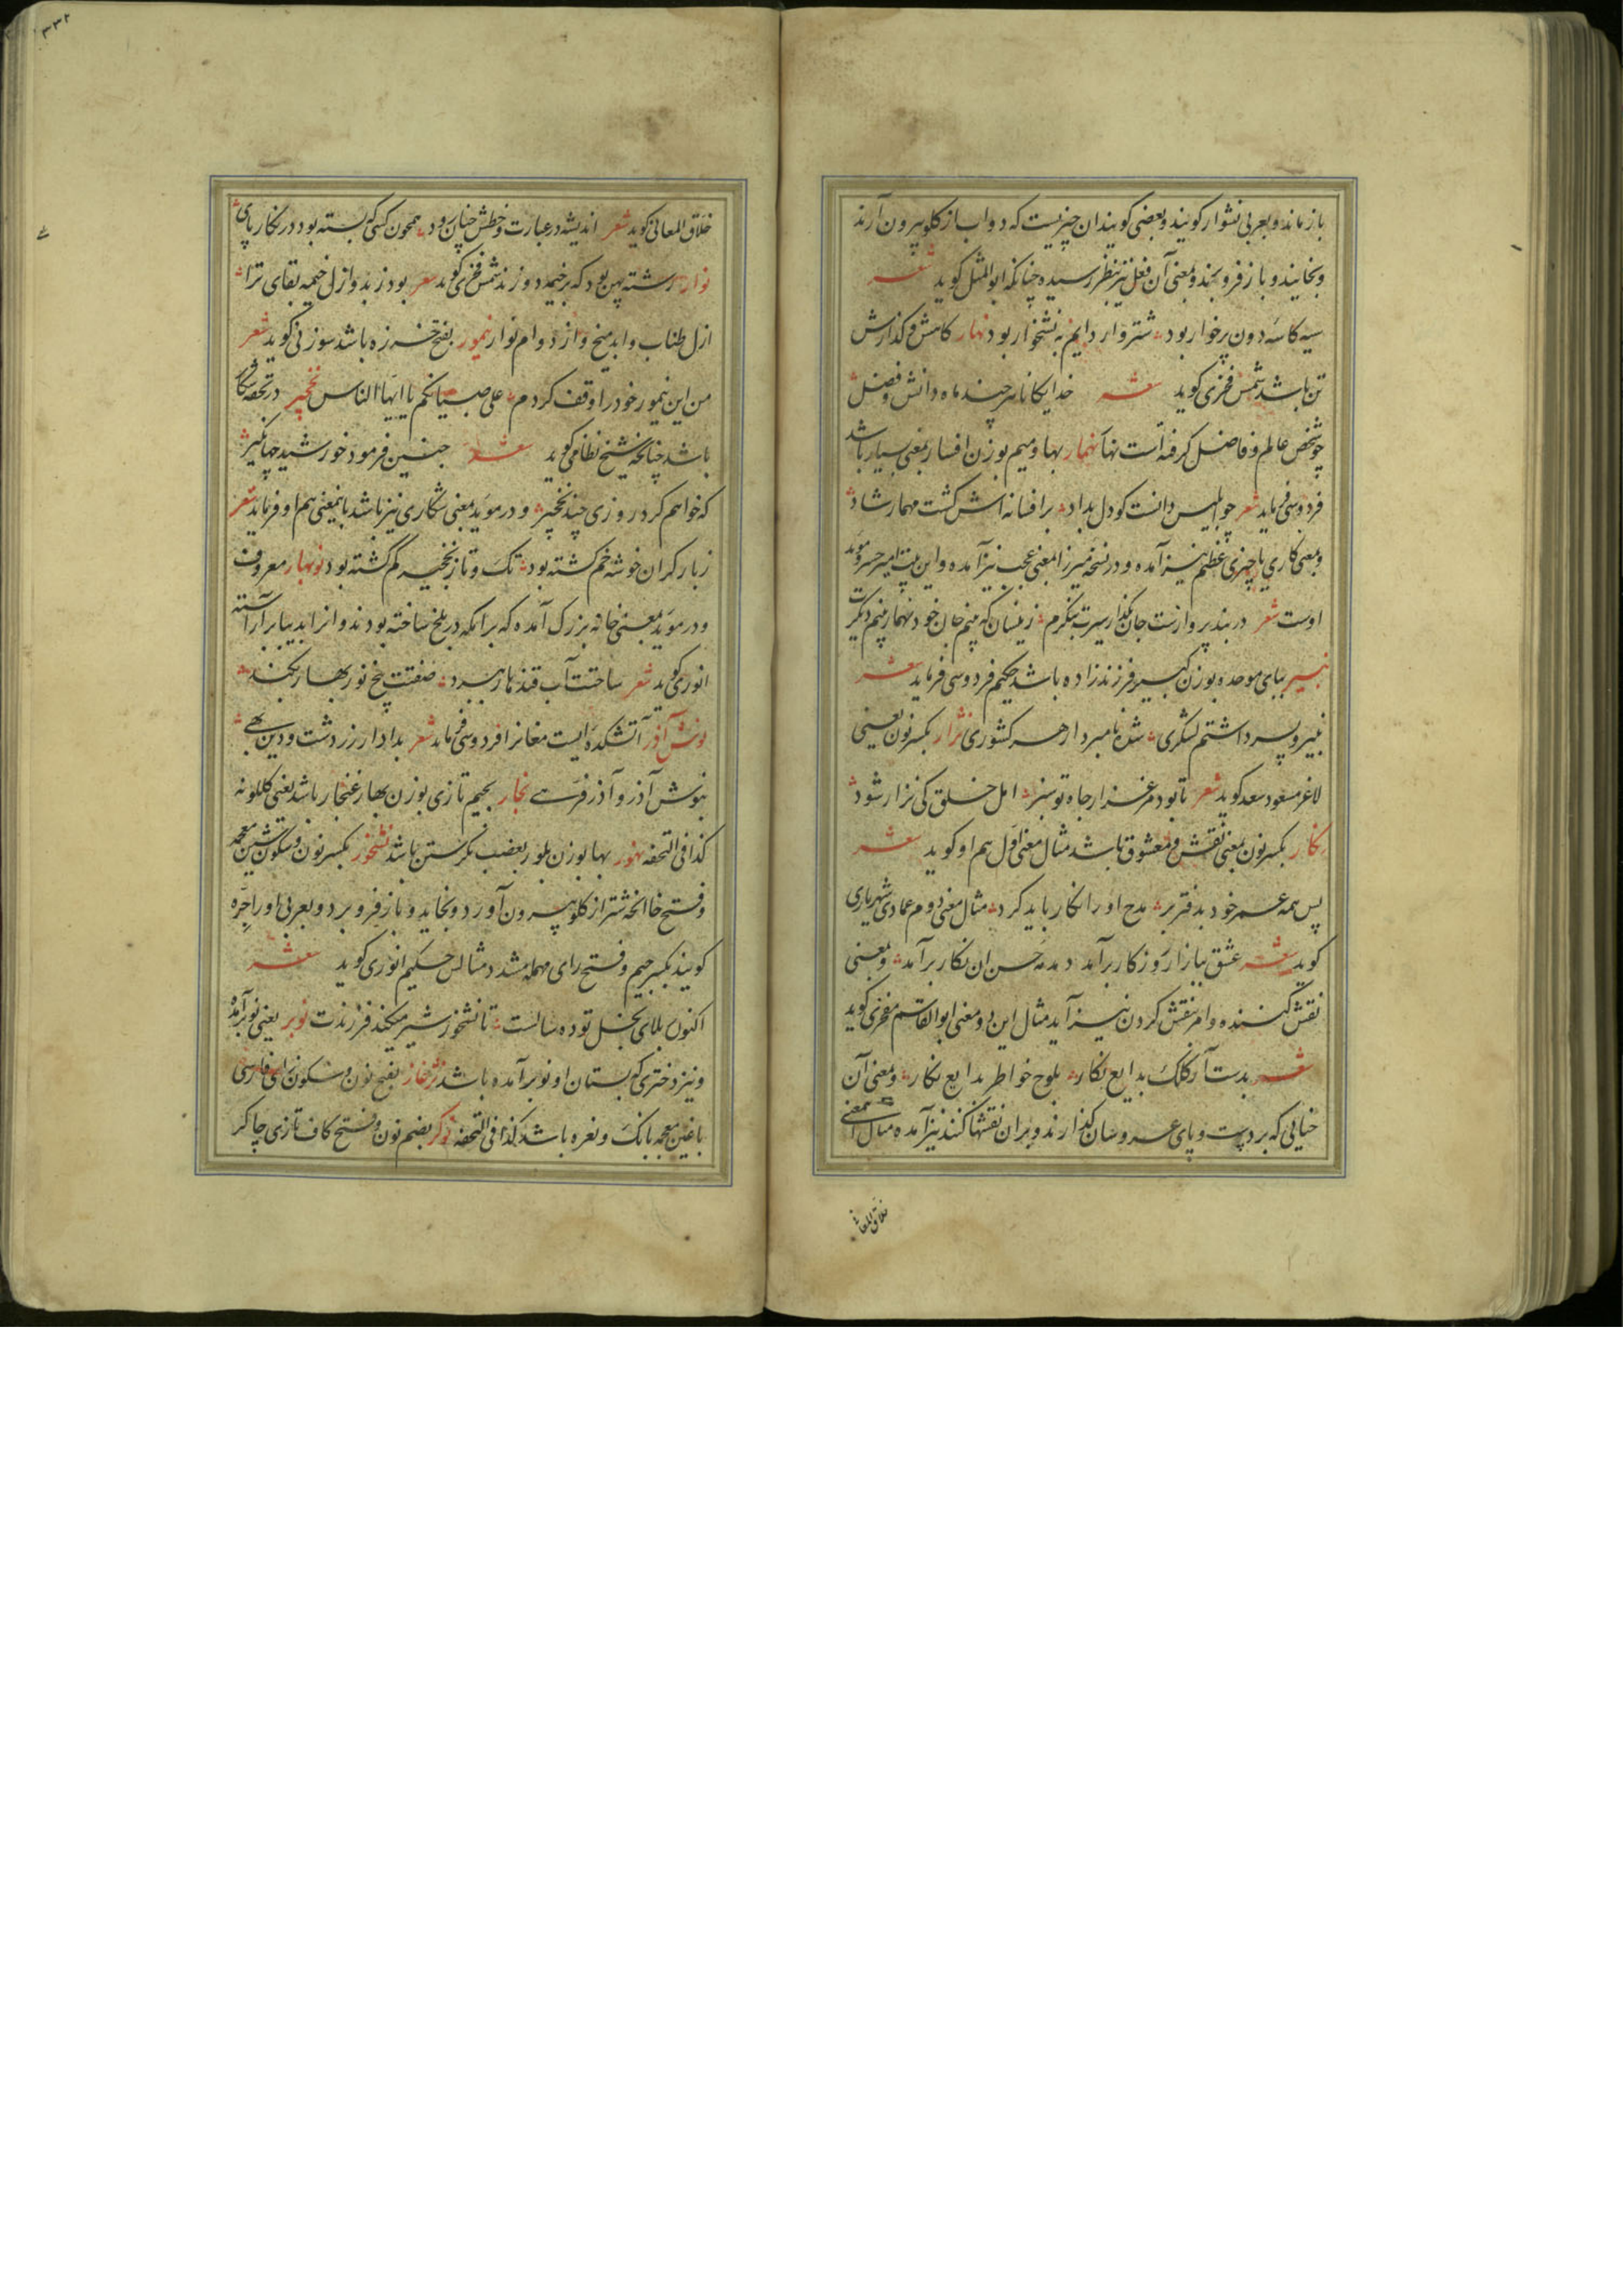 باز ماند و بعربی نشوار کویند و بعضی کویند ان چیزیست که دواب از کلو بیرون آرند
و بخایند و باز فرو برند و بمعنی آن فعل نیز بنظر رسیده چنانکه ابو المثل کوید شعر
سیه کاسه دون پرخوار بود شتروار دایم به نشخوار بود نهار کاهش و کدازش
تن باشد شمس فخری کوید شعر خدایکانا هر چند ماه دانش و فضل
چو شخص عالم و فاضل کرفته است نهار نهمار بها و میم بوزن افسار بمعنی بسیار باشد
فردوسی فرماید شعر چو ابلیس دانست کو دل بداد بر افسانه اش کشت نهمار شاد
و بمعنی کاری یا چیزی عظیم نیز آمده و در نسخه میرزا بمعنی عجب نیز آمده و این بیت امیر خسرو موید
اوست شعر در بند پروازست جان بکذار سیرت بنکرم زینسان که بینم جان خود نهمار بینم دیکرت
نبیر ببای موحده بوزن کبیر فرزند زاده باشد حکیم فردوسی فرماید شعر
نبیر و پسر داشتم لشکری شده نامبردار هر کشوری نزار بکسر نون یعنی
لاغر مسعود سعد کوید شعر تا بود مرغزار جاه تو سبز امل خلق کی نزار شود
نکار بکسر نون بمعنی نقش و معشوق باشد مثال معنی اول هم او کوید شعر
پس همه عمر خود بدفتر بر مدح او را نکار باید کرد مثال معنی دوم عمادی شهریاری
کوید شعر عشق ببازار روزکار برآمد دمدمه حسن ان نکار برآمد و بمعنی
نقش کننده و امر بنقش کردن نیز آید مثال این دو معنی ابو القاسم مفخری کوید
شعر بدست آر کلک بدایع نکار بلوح خواطر بدایع نکار و بمعنی آن
حنایی که بر دست و پای عروسان کذارند و بران نقشها کنند نیز آمده مثال این معنی
خلاق المعانی
خلاق المعانی کوید شعر اندیشه در عبارت و خطش چنان رود همچون کسی که بسته بود در نکار پای
نوار رشته پهن بود که بر خیمه دوزند شمس فخری کوید شعر بود زبد و ازل خیمه بقای ترا
ازل طناب و ابد میخ و از دوام نوار نیمور بفتح خرزه باشد سوزنی کوید شعر
من این نیمور خود را وقف کردم علی صبیانکم یا ایها الناس نخچیر در تحفه شکار
باشد چنانکه شیخ نظامی کوید شعر چنین فرمود خورشید جهانکیر
که خواهم کرد روزی چند نخچیر و در موید بمعنی شکاری نیز باشد باینمعنی هم او فرماید شعر
ز بار کران خوشه خم کشته بود تک و تاز نخجیر کم کشته بود نوبهار معروف
و در موید بمعنی خانه بزرک آمده که برامکه در بلخ ساخته بودند و انرا بدیبا بر آراسته
انوری کوید شعر ساحتت آب قندهار ببرد صفتت بیخ نوبهار بکند
نوش آذر آتشکده ایست مغانرا فردوسی فرماید شعر بدادار زردشت و دین بهی
بنوش آذر و آذر فرهی نجار بجیم تازی بوزن بهار غنجار باشد یعنی کلکونه
کذا فی التحفه نهور بها بوزن بلور بغضب نکرستن باشد نشخور بکسر نون و سکون شین معجمه
و فتح خا انچه شتر از کلو بیرون آورد و بخاید و باز فرو برد و بعربی او را جره
کویند بکسر جیم و فتح رای مهمله مشدد مثالش حکیم انوری کوید شعر
اکنون بلای بخل تو ده سالست تا نشخور شیر میکند فرزندت نوبر یعنی نو برآمده
و نیز دختری که پستان او نو برآمده باشد نژغار بفتح نون و سکون زای فارسی
با غین معجمه بانک و نعره باشد کذا فی التحفه نوکر بضم نون و فتح کاف تازی چاکر
۳۳۲